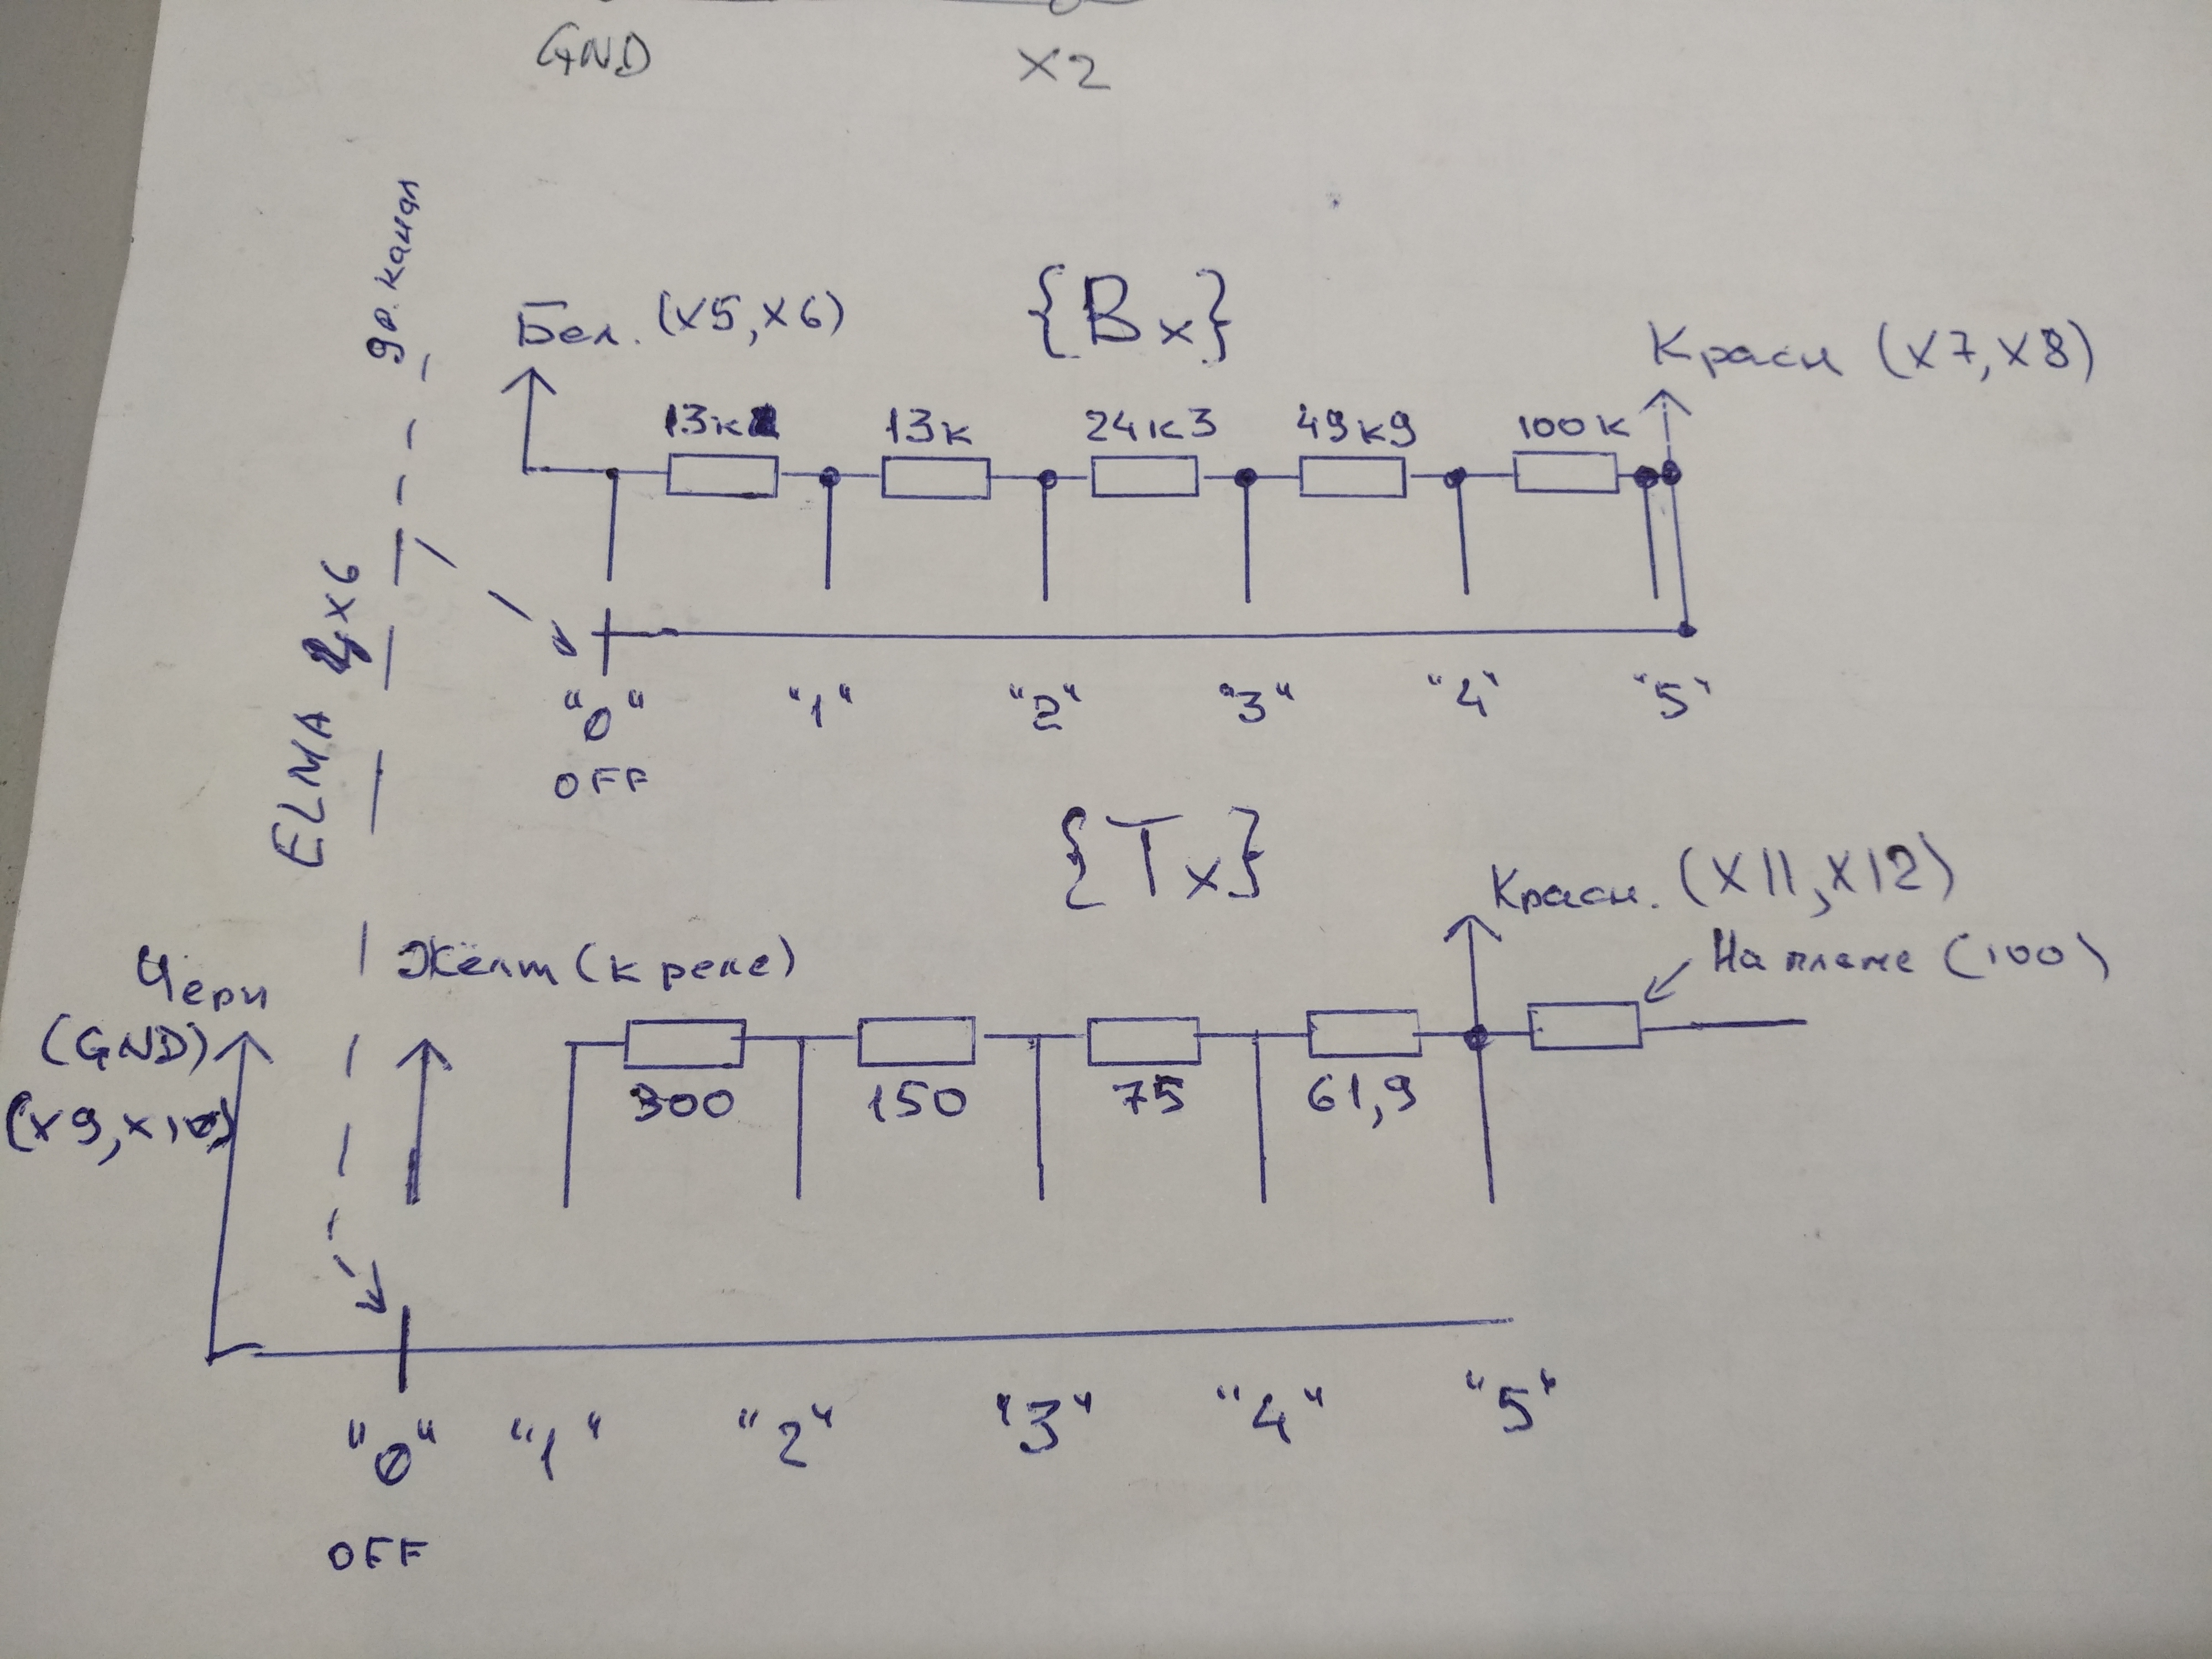 GND
X2
др. канал
Бел. (X5, X6)
{Вх}
Красн (X7, X8)
13к
13к
24к3
49к9
100к
ELMA 4x6
"0"
"1"
"2"
"3"
"4"
"5"
OFF
{Тх}
Красн. (X11, X12)
На плате (100)
Черн
(GND)
(X9, X10)
Жёлт (к реле)
300
150
75
61,9
"0"
"1"
"2"
"3"
"4"
"5"
OFF